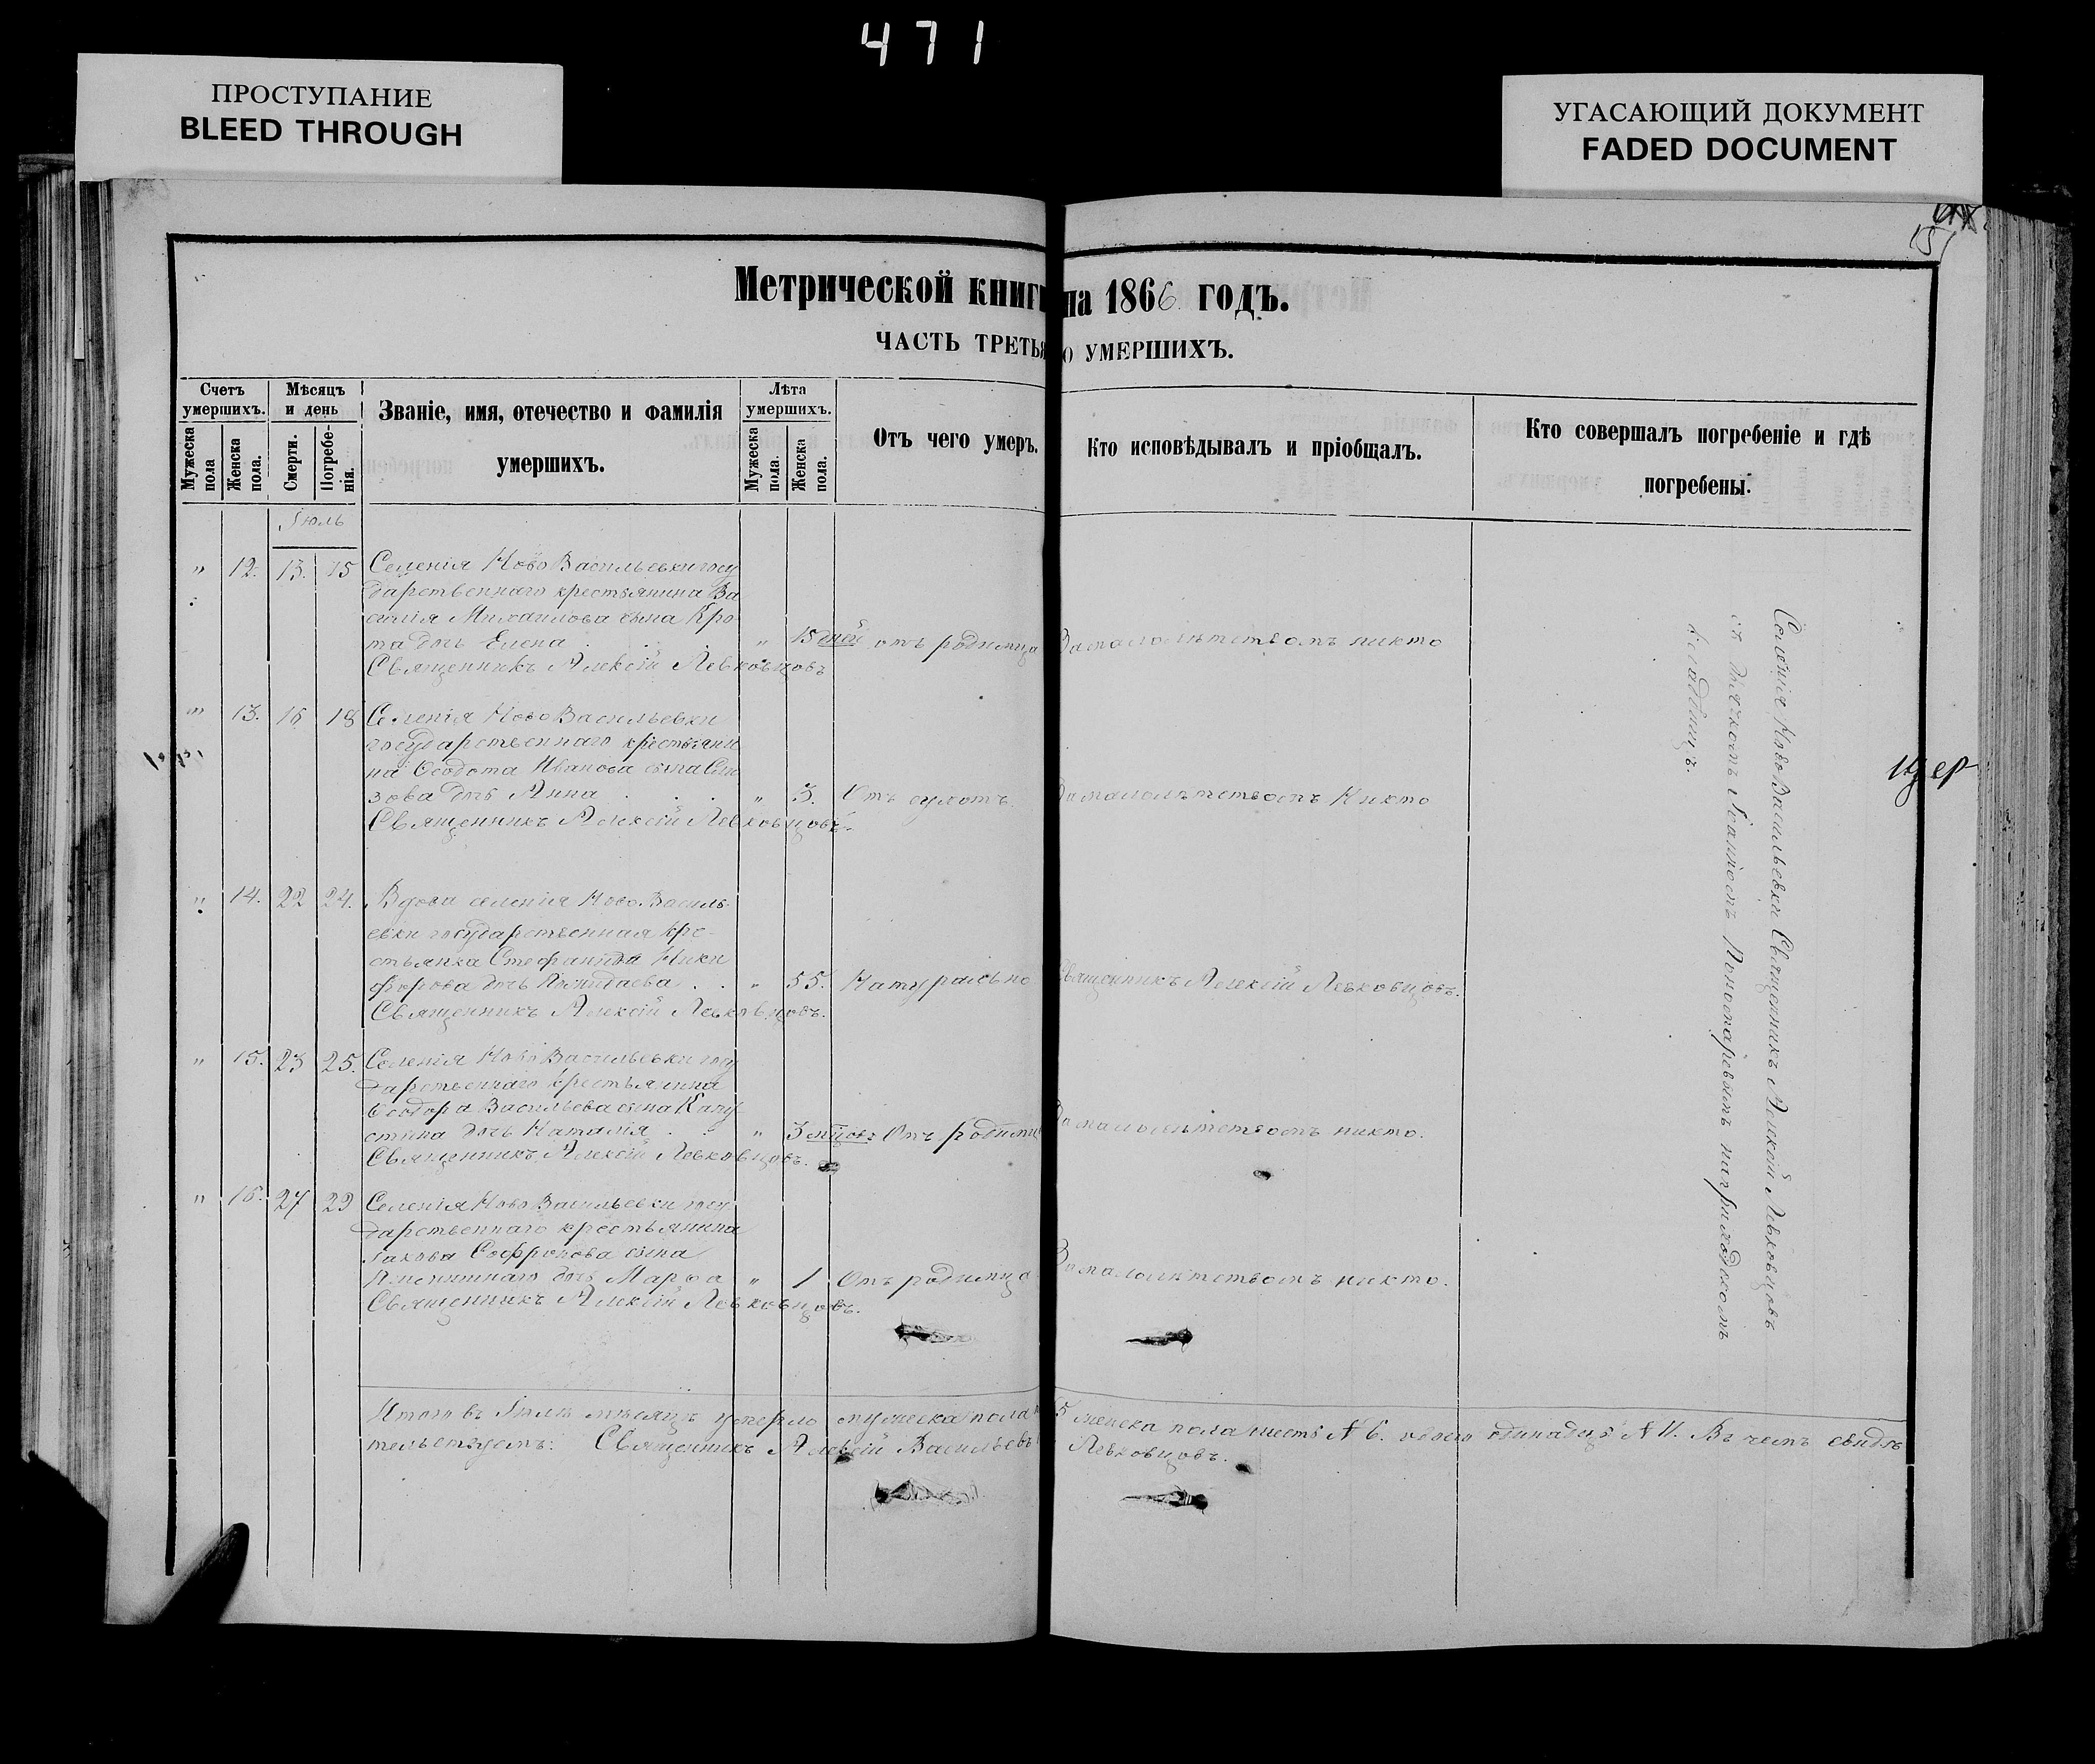 471
ПРОСТУПАНИЕ
BLEED THROUGH
УГАСАЮЩИЙ ДОКУМЕНТ
FADED DOCUMENT
151
Метрической книги на 1866 годъ.
ЧАСТЬ ТРЕТЬЯ О УМЕРШИХЪ.
Счетъ умершихъ.
Мужеска пола
Женска пола.
Мѣсяцъ и день
Смерти.
Погребенія.
Званіе, имя, отечество и фамилія
умершихъ.
Лѣта умершихъ.
Мужеска пола.
Женска пола.
Отъ чего умеръ.
Кто исповѣдывалъ и пріобщалъ.
Кто совершалъ погребеніе и гдѣ
погребены.
Іюль
" 12. 13. 15 Селенія Ново Васильевки госу
дарственнаго крестьянина Ва
силія Михаилова сына Кро
та дочь Елена . . . " 15 дней отъ родимца За малолѣтствомъ никто
Священникъ Алексій Левковцовъ
" 13. 16 18 Селенія Ново Васильевки
государственнаго крестьяни
на Ѳеодота Иванова сына
зова дочь Анна . . . " 3. Отъ сухотъ. За малолѣтствомъ Никто
Священникъ Алексій Левковцовъ.
" 14. 22 24. Вдова селенія Ново Василь
евки государственная кре-
стьянка Стефанида Ники
форова дочь . . " 55. Натурально Священникъ Алексій Левковцовъ.
Священникъ Алексій Левковцовъ.
" 15. 23 25. Селенія Ново Васильевки госу
дарственнаго крестьянина
Ѳеодора Васильева сына Капу
стина дочь Наталія . . " 3 мѣцовъ Отъ родимц За малолѣтствомъ никто.
Священникъ Алексій Левковцовъ.
" 16. 27 29 Селенія Ново Васильевки госу
дарственнаго крестьянина
Іакова Софронова сына
дочь Марѳа " 1 Отъ родимца За малолѣтствомъ никто.
Священникъ Алексій Левковцовъ.
Селенія Ново Васильевки Священникъ Алексій Левковцовъ
съ дьячкомъ Іоанномъ Пономаревымъ на приходскомъ
кладбищѣ.
Итого въ Іюлѣ мѣсяцѣ умерло мужеска пола 5 женска пола шесть № 6. обоего одинадцать № 11. Въ чемъ свидѣ
тельствуемъ: Священникъ Алексій Васильевъ Левковцовъ.